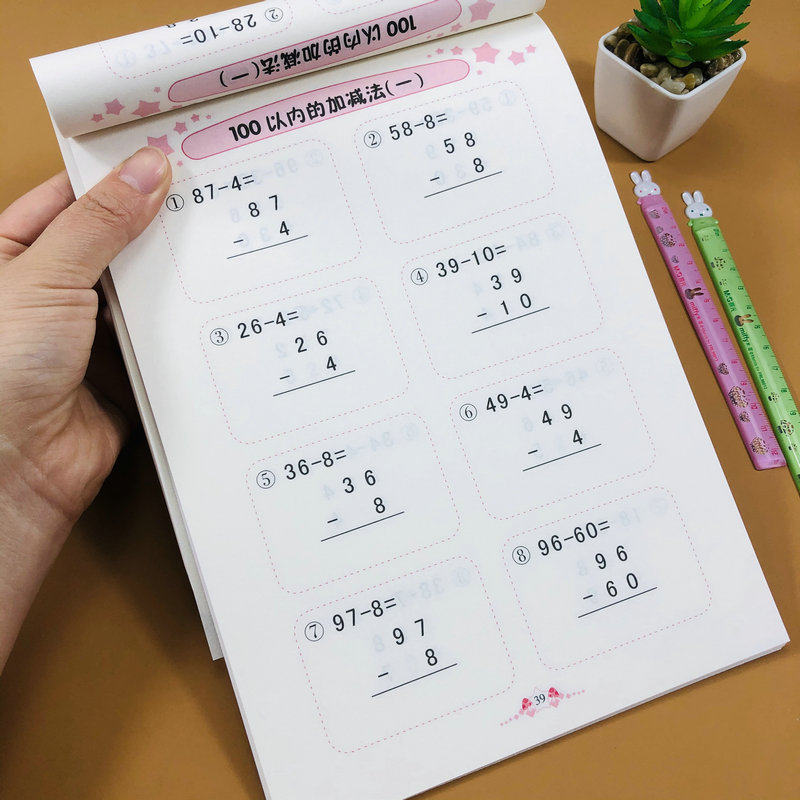 ② 28-10=
100 以内的加减法(一)
100 以内的加减法(一)
① 87-4=
8 7
- 4
② 58-8=
5 8
- 8
③ 26-4=
2 6
- 4
④ 39-10=
3 9
- 1 0
⑤ 36-8=
3 6
- 8
⑥ 49-4=
4 9
- 4
⑦ 97-8=
9 7
- 8
⑧ 96-60=
9 6
- 6 0
39
M&G
miffy
M&G
miffy